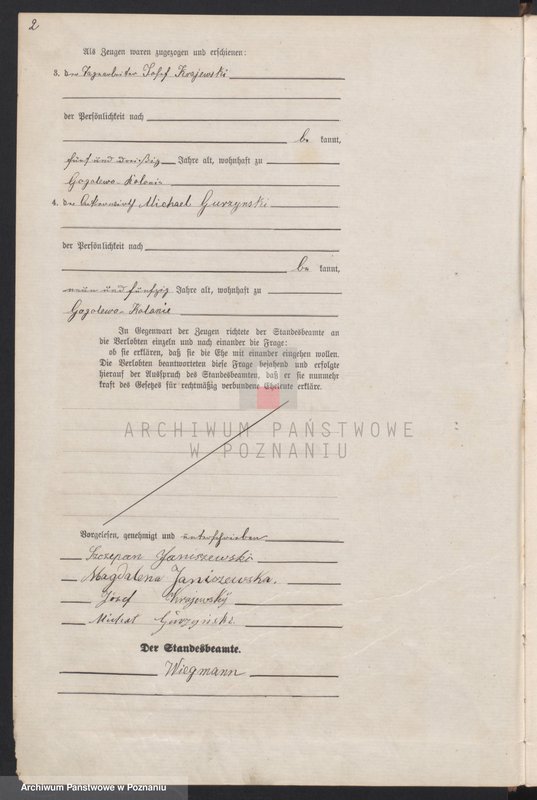 2
Als Zeugen waren zugezogen und erschienen:
3. der Tagearbeiter Josef Krajewski
der Persönlichkeit nach
be kannt,
fünf und dreißig Jahre alt, wohnhaft zu
Gogolewo-Kolonie
4. der Ackerwirth Michael Gurzynski
der Persönlichkeit nach
be kannt,
neun und fünfzig Jahre alt, wohnhaft zu
Gogolewo-Kolonie
In Gegenwart der Zeugen richtete der Standesbeamte an
die Verlobten einzeln und nach einander die Frage:
ob sie erklären, daß sie die Ehe mit einander eingehen wollen.
Die Verlobten beantworteten diese Frage bejahend und erfolgte
hierauf der Ausspruch des Standesbeamten, daß er sie nunmehr
kraft des Gesetzes für rechtmäßig verbundene Eheleute erkläre.
ARCHIWUM PAŃSTWOWE
W POZNANIU
Vorgelesen, genehmigt und unterschrieben
Szczepan Janiszewski
Magdalena Janiszewska.
Józef Krajewský
Michał Górzyński
Der Standesbeamte.
Wiegmann
Archiwum Państwowe w Poznaniu